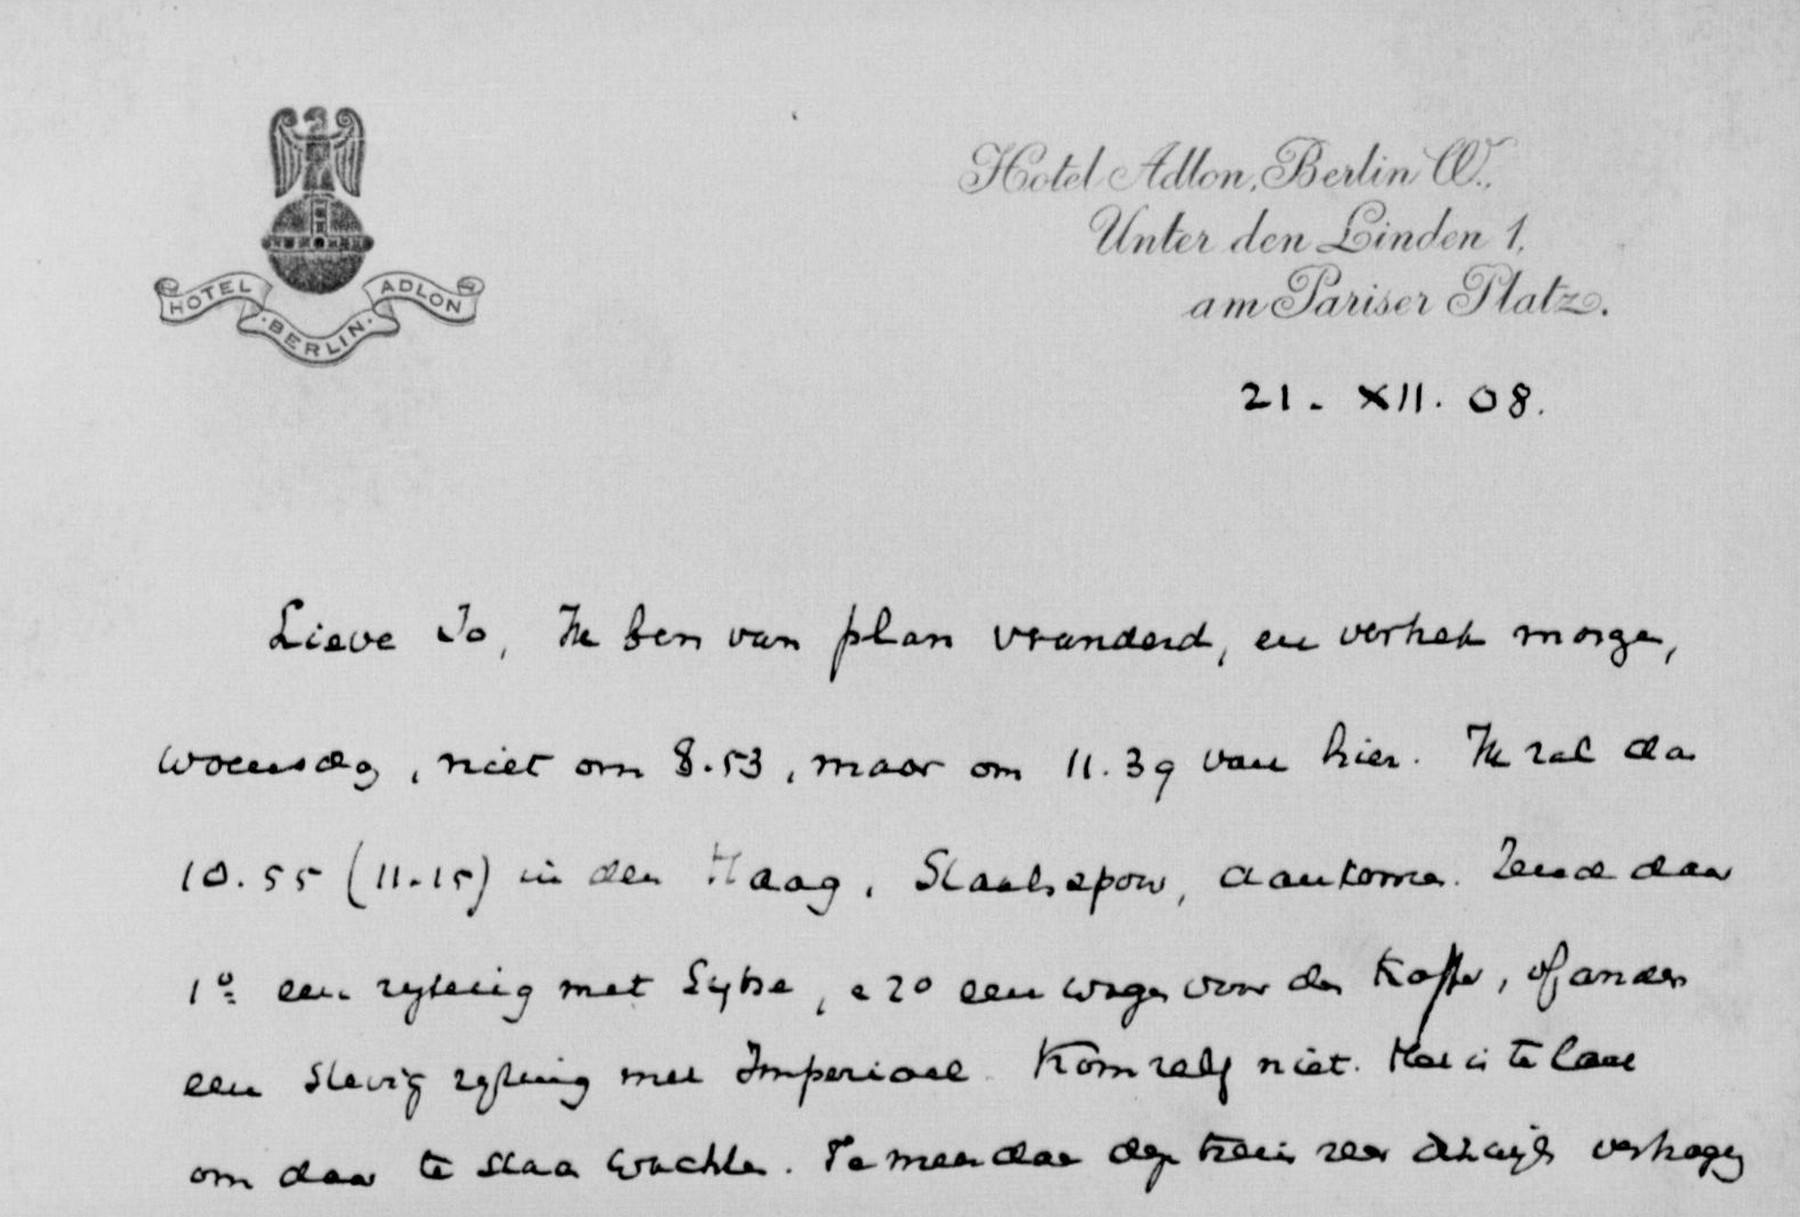 HOTEL ADLON
BERLIN
Hotel Adlon, Berlin W.,
Unter den Linden 1,
am Pariser Platz.
21. XII. 08.
Lieve Jo, Ik ben van plan veranderd, en vertrek morgen,
woensdag, niet om 8.53, maar om 11.39 van hier. Ik zal dan
10.55 (11.15) in den Haag, Staatsspoor, aankomen. Zend daar
1º een rijtuig met Sytse, en 2º een wagen voor den koffer, of anders
een stevig rijtuig met Imperiaal. Kom zelf niet. Het is te laat
om daar te staan wachten. Te meer daar de trein zeer dikwijls vertraging